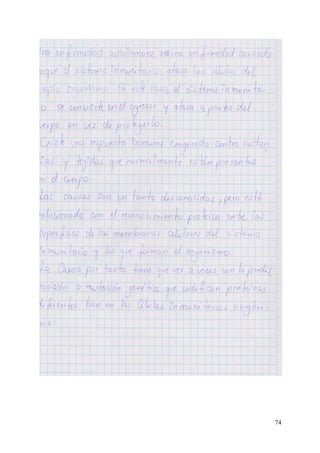 na enfermedad autoinmune es una enfermedad causada
orque el sistema inmunitario ataca las células del
ropio organismo. En este caso, el sistema inmunita-
o se convierte en el agresor y ataca a partes del
uerpo en vez de protegerlo.
Existe una respuesta inmune exagerada contra sustan
ias y tejidos que normalmente están presentes
n el cuerpo.
Las causas son un tanto desconocidas, pero está
relacionada con el reconocimiento proteico entre las
superficies de las membranas celulares del sistema
inmunitario y las que forman el organismo
La causa por tanto tiene que ver a veces con la predis
posición o mutación genética que codifican proteínas
diferentes bien en las células inmunitarias u orgáni-
cas.
74